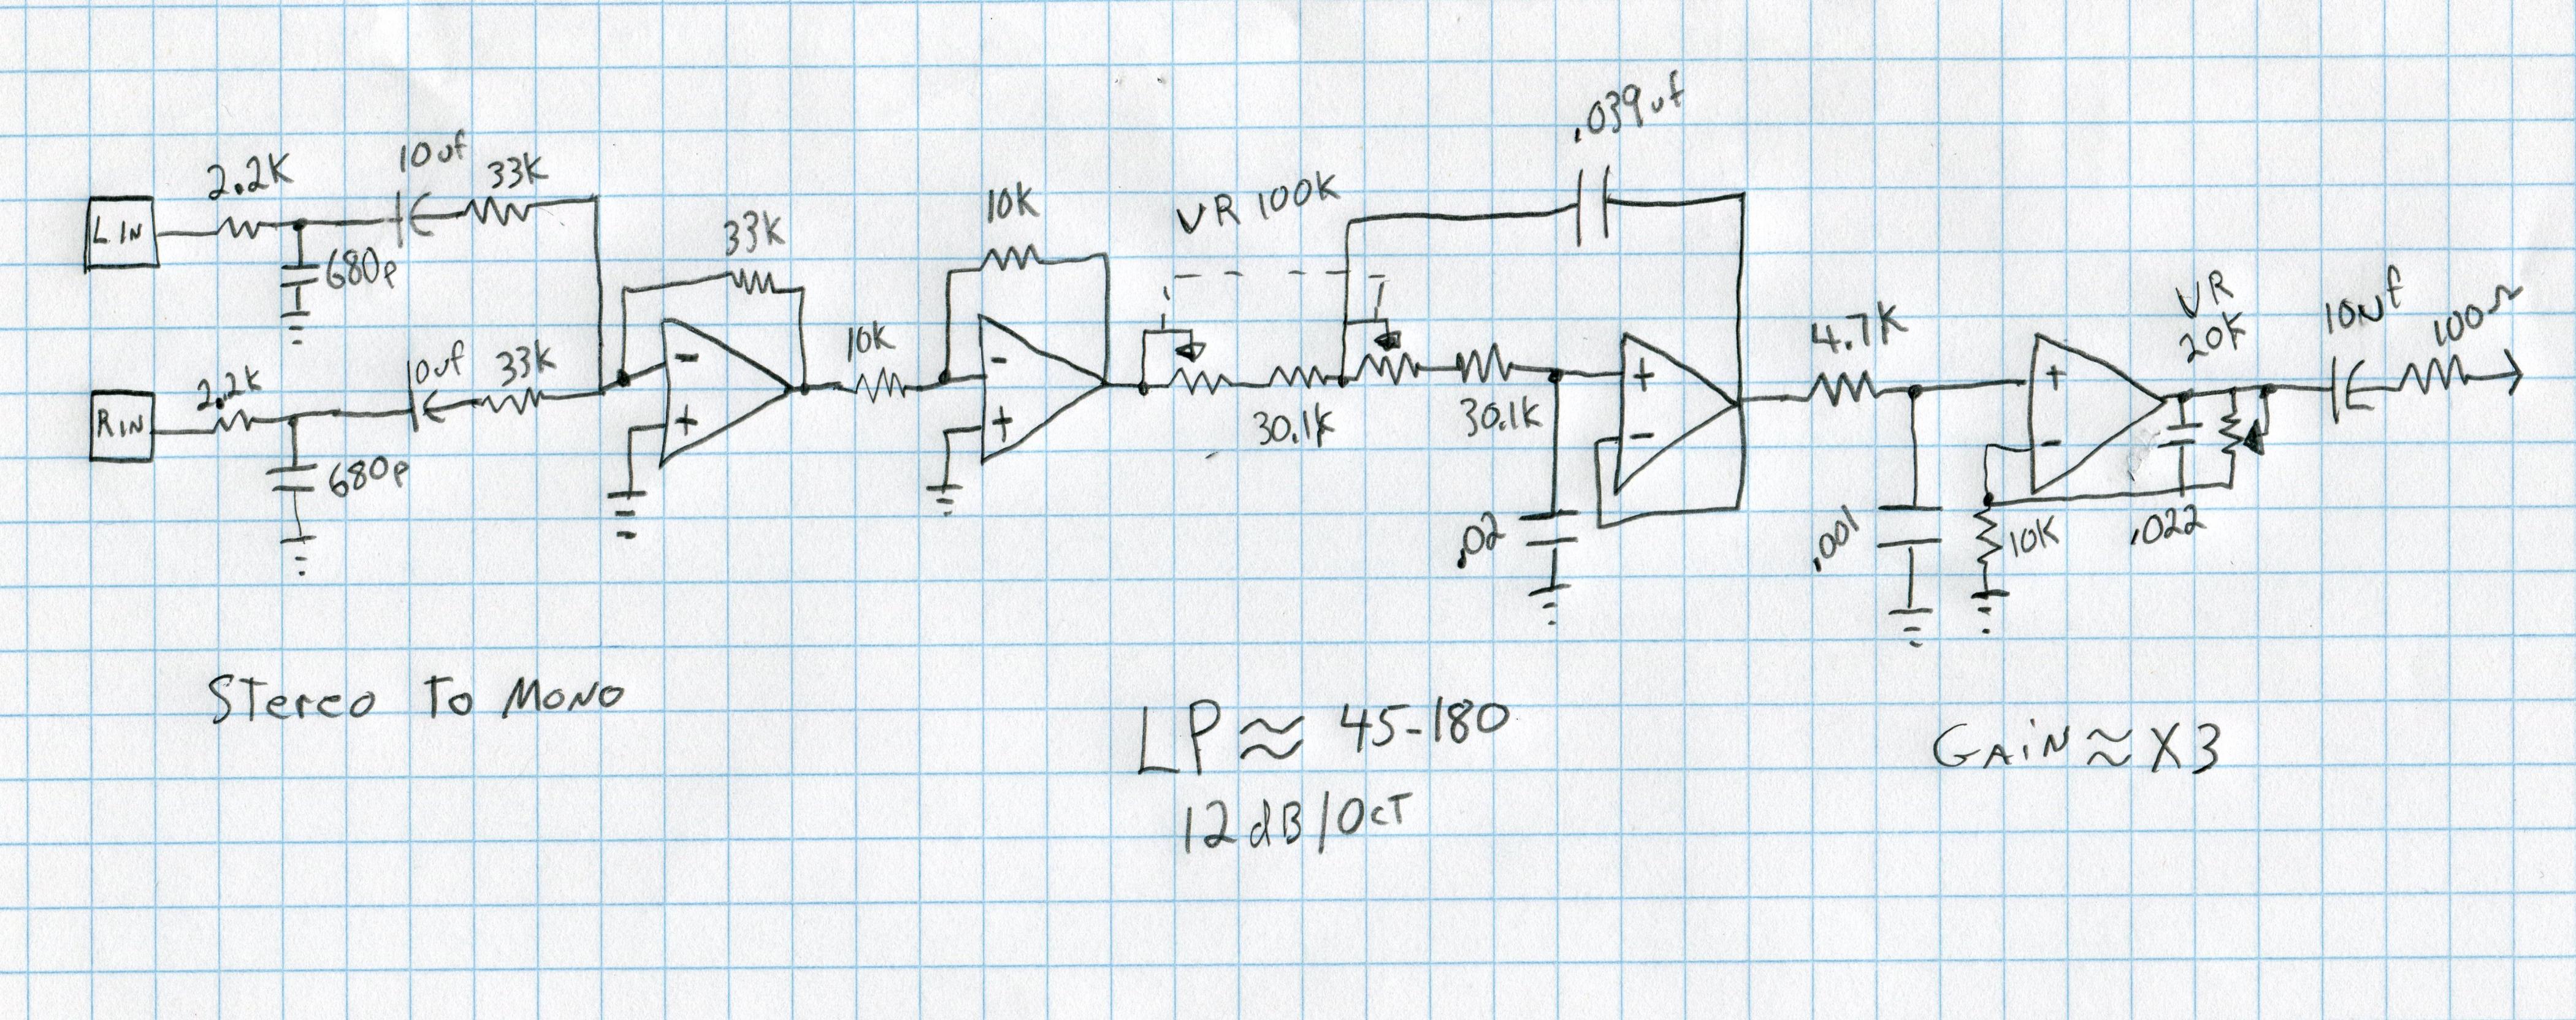 L IN
2.2K
680p
10uf
33K
R IN
2.2K
680p
10uf
33K
33K
-
+
10K
10K
-
+
VR 100K
30.1K
30.1K
.039uf
+
-
.02
4.7K
.001
+
-
10K
.022
VR
20K
10uf
100Ω
Stereo To Mono
LP ≈ 45-180
12dB/Oct
GAiN ≈ X3